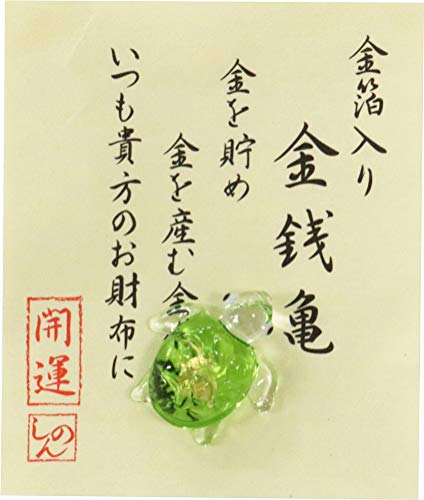 金箔入り
金銭亀
金を貯め
金を産む金
いつも貴方のお財布に
開運
しのん